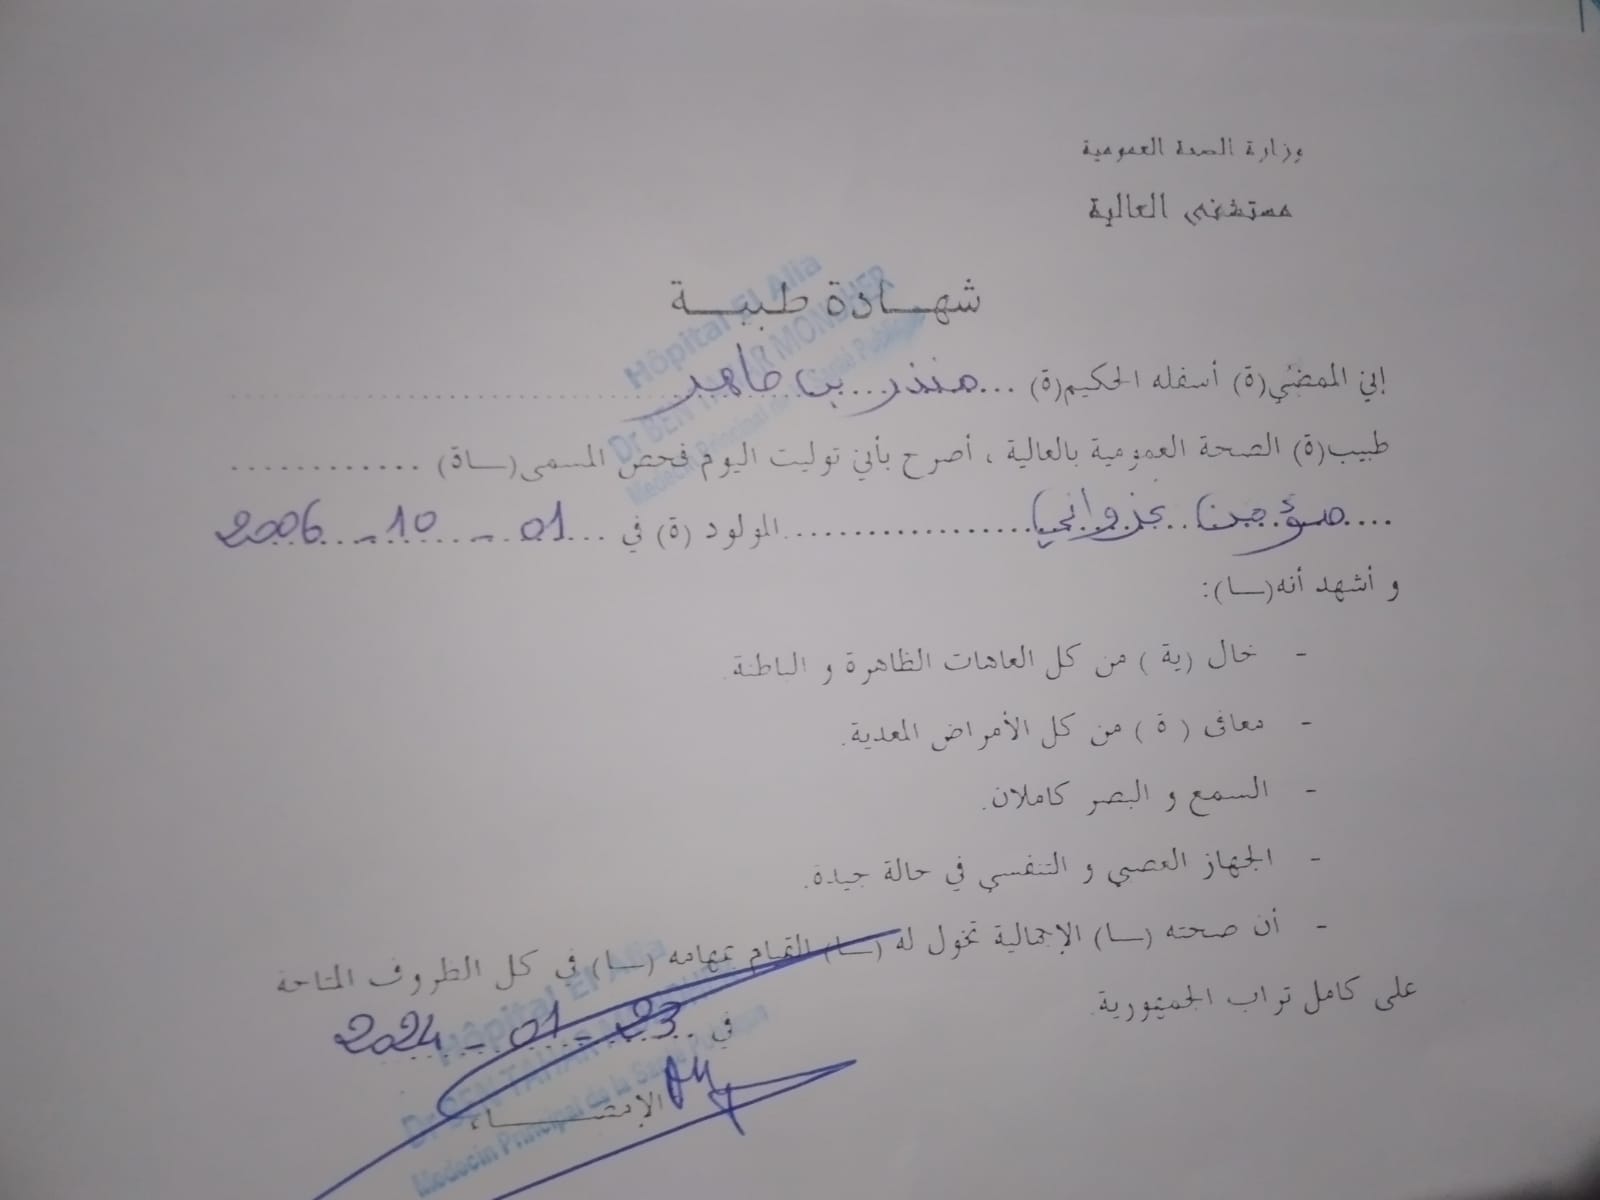 وزارة الصحة العمومية
مستشفى العالية
شهادة طبية
Hôpital El Alia
Dr BEN TAHAR MONDHER
Medecin Principal de la Santé Publique
إني الممضي(ة) أسفله الحكيم(ة) ...منذر بن طاهر...........
طبيب(ة) الصحة العمومية بالعالية ، أصرح بأني توليت اليوم فحص المسمى(ــاة) ............
....مؤمن ...............المولود (ة) في ...01-10-2006
و أشهد أنه(ــا):
- خال (ية ) من كل العاهات الظاهرة و الباطنة.
- معافى ( ة ) من كل الأمراض المعدية.
- السمع و البصر كاملان.
- الجهاز العصبي و التنفسي في حالة جيدة.
- أن صحته (ــا) الإجمالية تخول له (ــا) القيام بمهامه (ــا) في كل الظروف المتاحة
على كامل تراب الجمهورية.
في 23-01-2024
الإمضــــــاء
Hôpital El Alia
Dr BEN TAHAR MONDHER
Medecin Principal de la Santé Publique